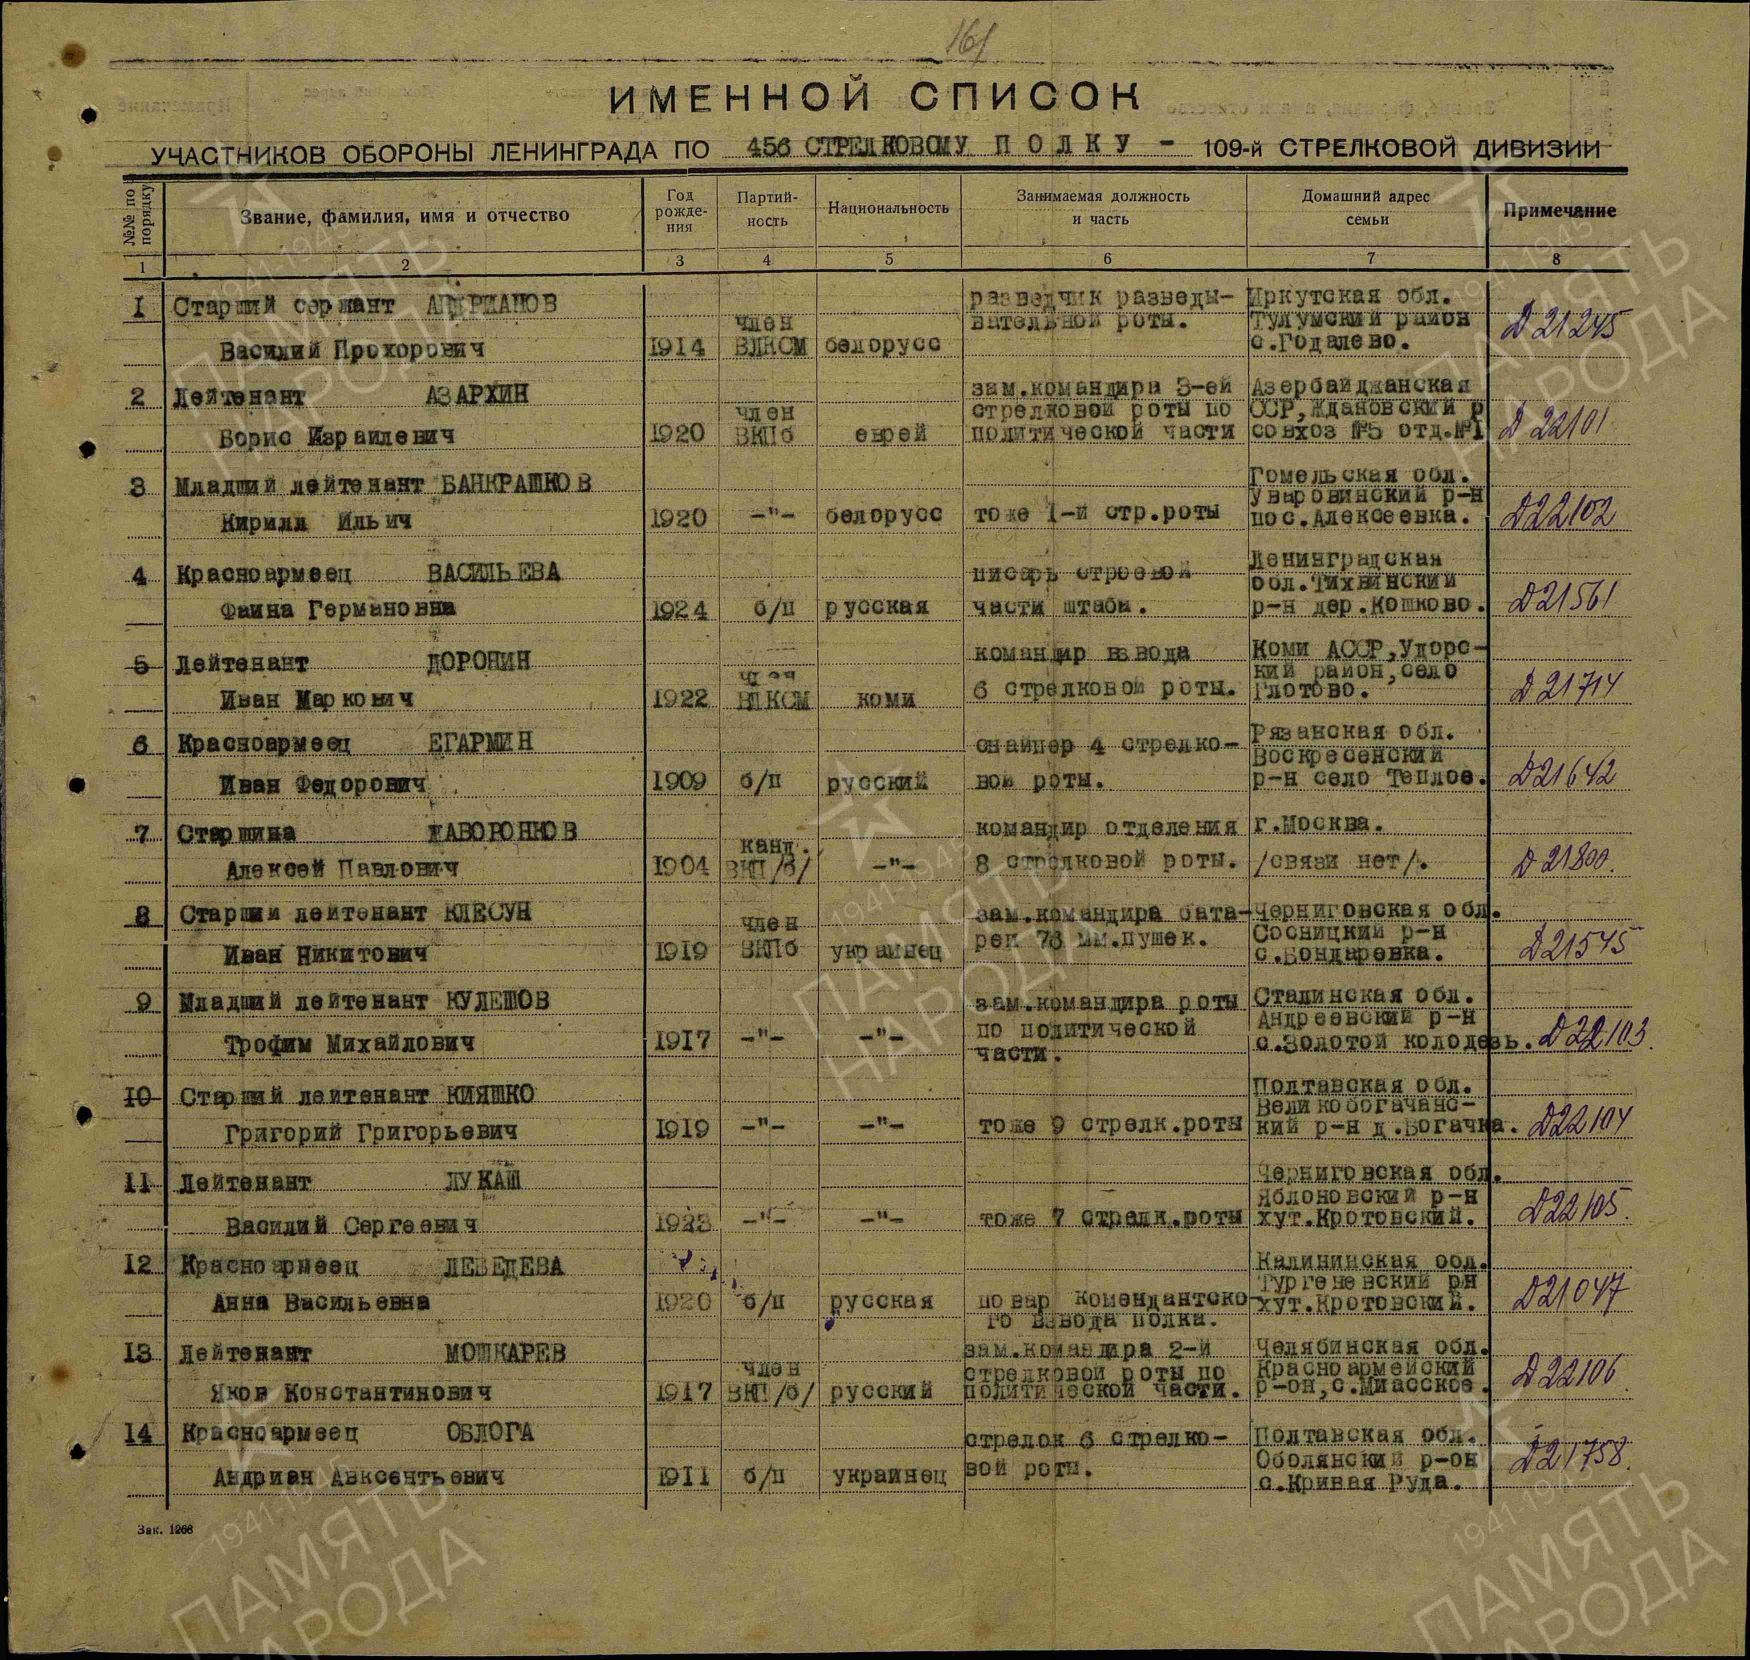 161
ИМЕННОЙ СПИСОК
УЧАСТНИКОВ ОБОРОНЫ ЛЕНИНГРАДА ПО 456 СТРЕЛКОВОМУ ПОЛКУ - 109-й СТРЕЛКОВОЙ ДИВИЗИИ
№№ по порядку | Звание, фамилия, имя и отчество | Год рожде-ния | Партий-ность | Национальность | Занимаемая должность и часть | Домашний адрес семьи | Примечание
1 2 3 4 5 6 7 8
I Старший сержант АНДРИАНОВ разведчик разведы- Иркутская обл.
член вательной роты. Тулумский район Д 21245
Василий Прохорович 1914 ВЛКСМ белорусс с.Годалево.
2 Лейтенант АЗАРХИН зам.командира 3-ей Азербайджанская
член стрелковой роты по ССР, Ждановский р
Борис Израилевич 1920 ВКПб еврей политической части совхоз №5 отд.№I Д 22101
3 Младший лейтенант БАНКРАШКОВ Гомельская обл.
Уваровинский р-н
Кирилл Ильич 1920 -"- белорусс тоже I-й стр.роты пос.Алексеевка. Д22102
4 Красноармеец ВАСИЛЬЕВА писарь строевой Ленинградская
обл.Тихвинский
Фаина Германовна 1924 б/п русская части штаба. р-н дер.Кошково. Д21561
5 Лейтенант ДОРОНИН командир взвода Коми АССР,Удорс-
член кий район,село
Иван Маркович 1922 ВЛКСМ коми 6 стрелковой роты. Глотово. Д21714
6 Красноармеец ЕГАРМИН снайпер 4 стрелко- Рязанская обл.
Воскресенский
Иван Федорович 1909 б/п русский вой роты. р-н село Теплое. Д21642
7 Старшина ЖАВОРОНКОВ командир отделения г.Москва.
канд.
Алексей Павлович 1904 ВКП/б/ -"- 8 стрелковой роты. /связи нет/. Д21800.
8 Старший лейтенант КЛЕСУН зам.командира бата- Черниговская обл.
член реи 76 мм.пушек. Сосницкий р-н
Иван Никитович 1919 ВКПб украинец с.Бондаревка. Д21545
9 Младший лейтенант КУЛЕШОВ зам.командира роты Сталинская обл.
по политической Андреевский р-н
Трофим Михайлович 1917 -"- -"- части. с.Золотой колодезь. Д22103.
10 Старший лейтенант КИЯШКО Полтавская обл.
Великобогачанс-
Григорий Григорьевич 1919 -"- -"- тоже 9 стрелк.роты кий р-н д.Богачка. Д22104
11 Лейтенант ЛУКАШ Черниговская обл.
Яблоновский р-н
Василий Сергеевич 1923 -"- -"- тоже 7 стрелк.роты хут.Кротовский. Д22105.
12 Красноармеец ЛЕБЕДЕВА Калининская обл.
Тургеневский рн
Анна Васильевна 1920 б/п русская повар комендантско- хут.Кротовский. Д21047
го взвода полка.
13 Лейтенант МОШКАРЕВ зам.командира 2-й Челябинская обл.
член стрелковой роты по Красноармейский
Яков Константинович 1917 ВКП/б/ русский политической части. р-он,с.Миасское. Д22106
14 Красноармеец ОБЛОГА стрелок 6 стрелко- Полтавская обл.
вой роты. Оболянский р-он
Андриан Авксентьевич 1911 б/п украинец с.Кривая Руда. Д21758.
Зак. 1268
1941 1945
ПАМЯТЬ
НАРОДА